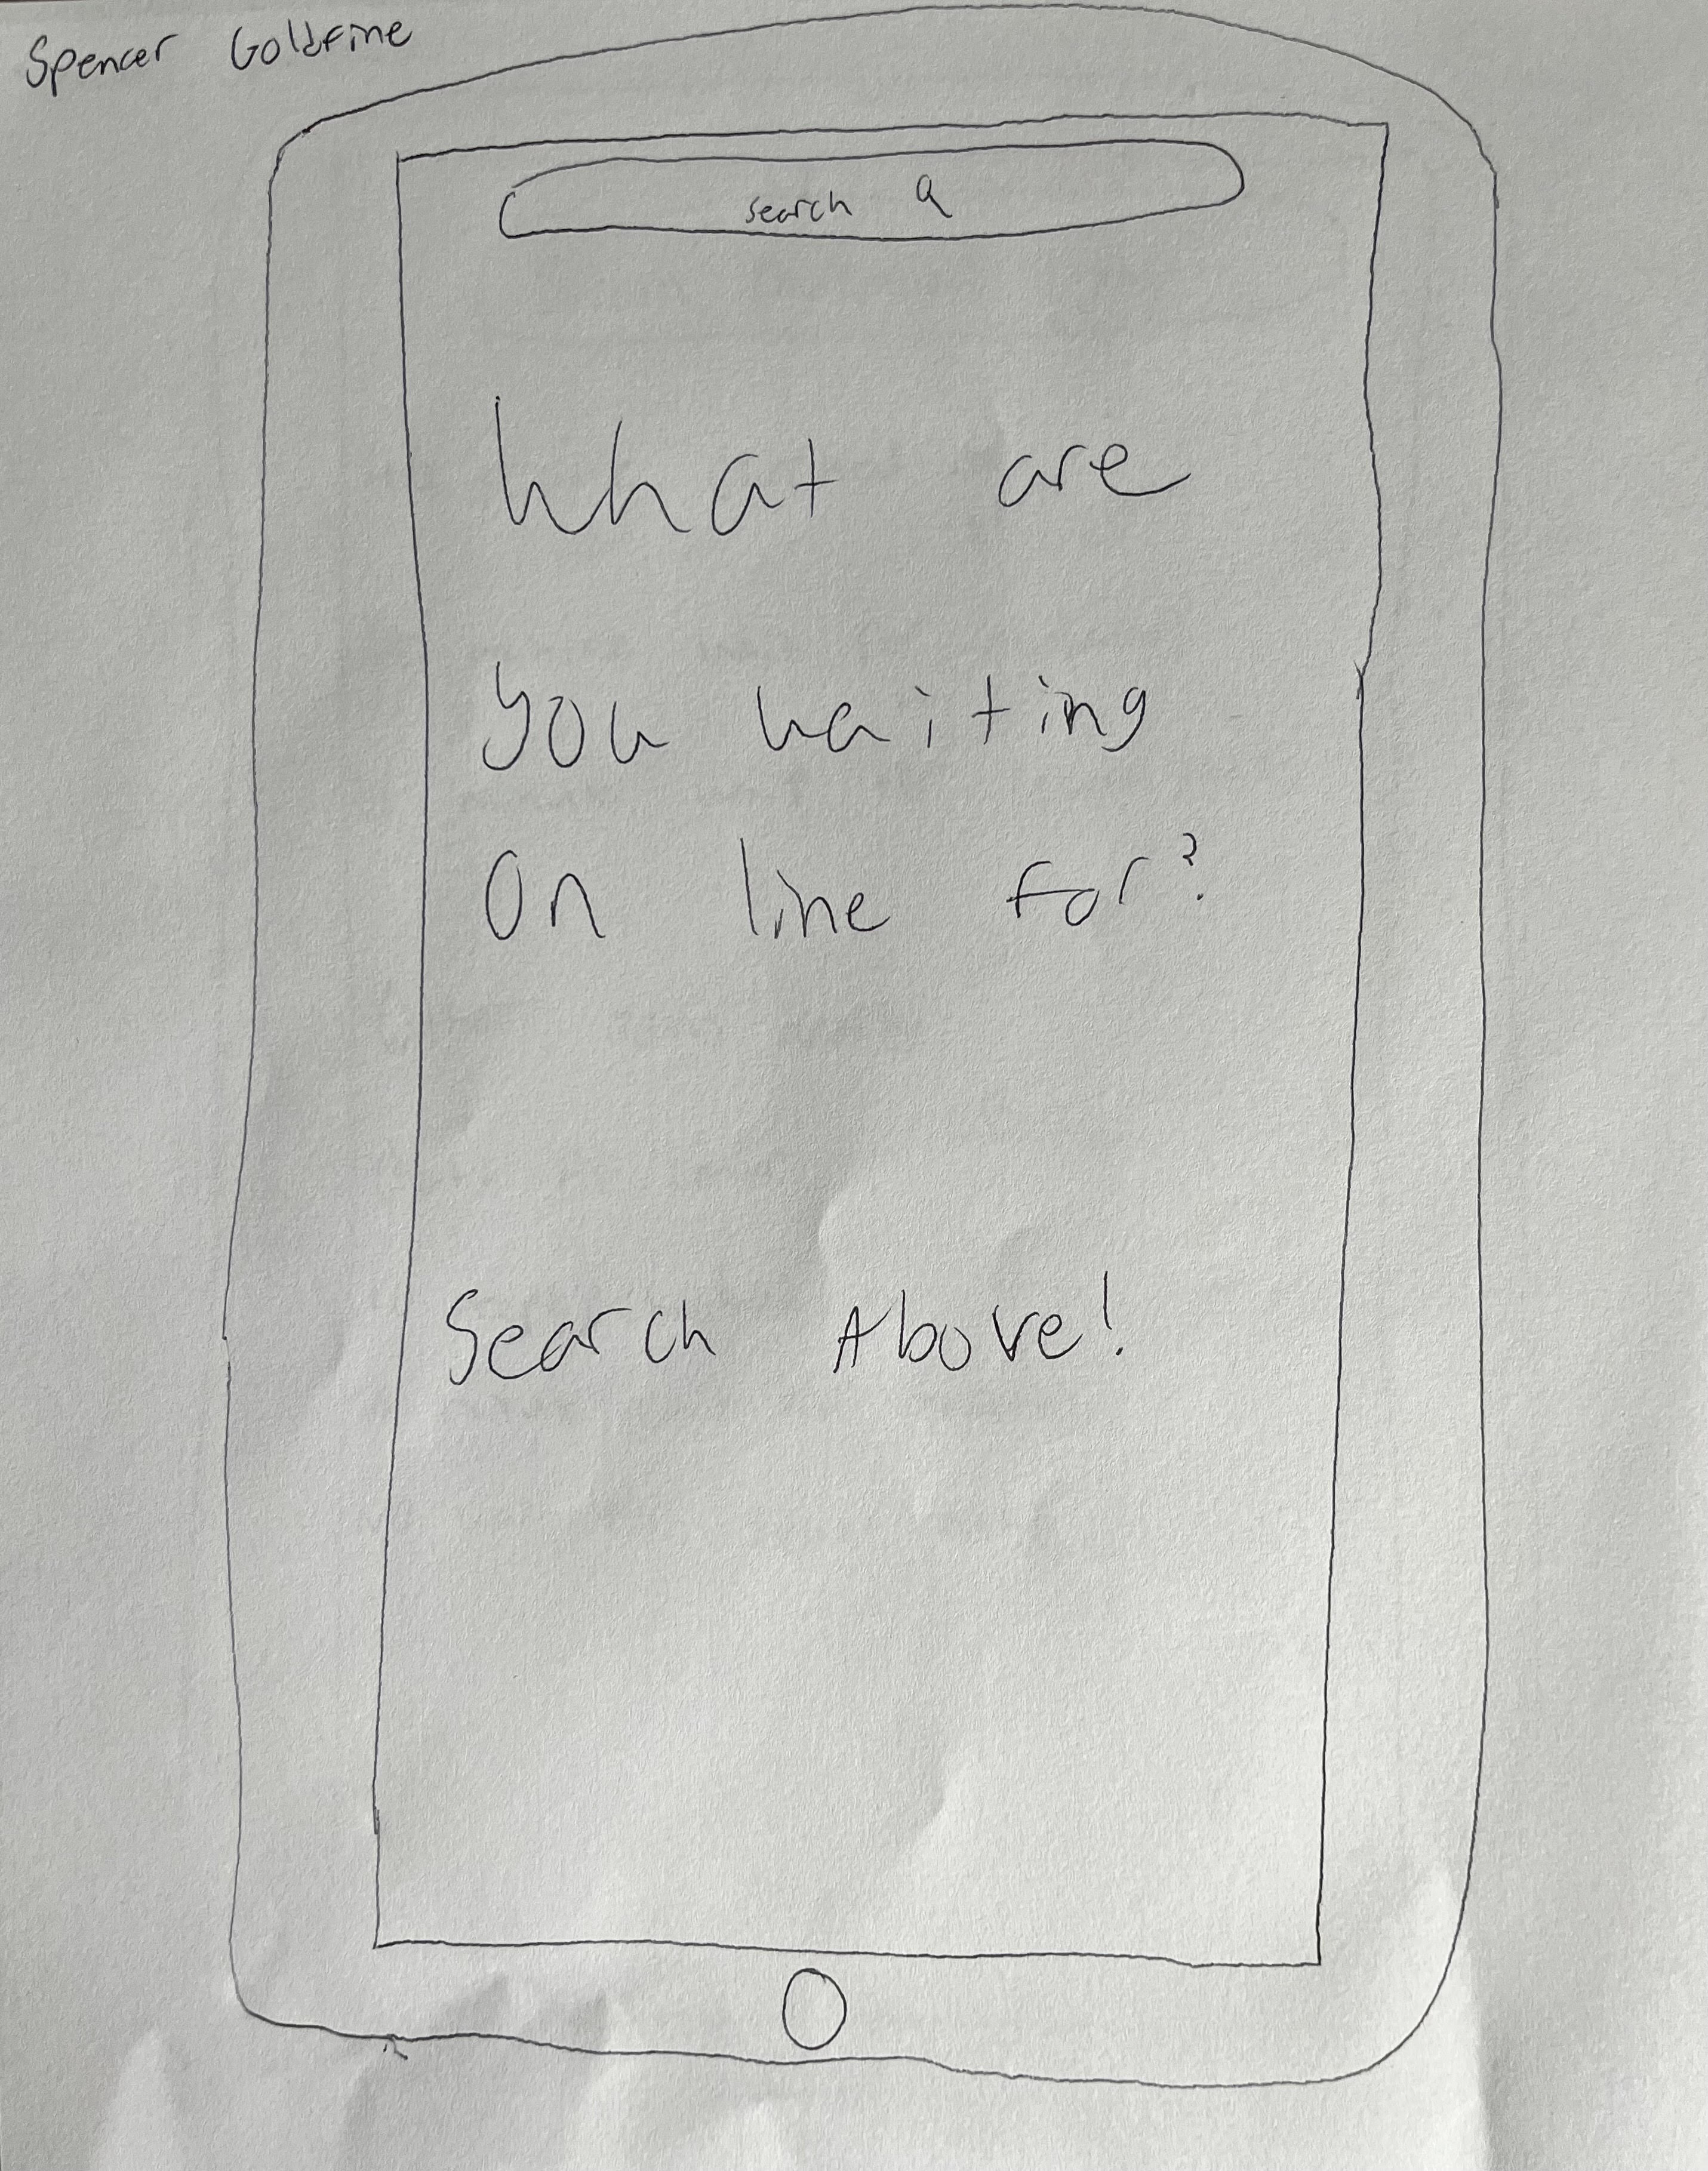 Spencer Goldfine
search
What are
you waiting
On line for?
Search Above!